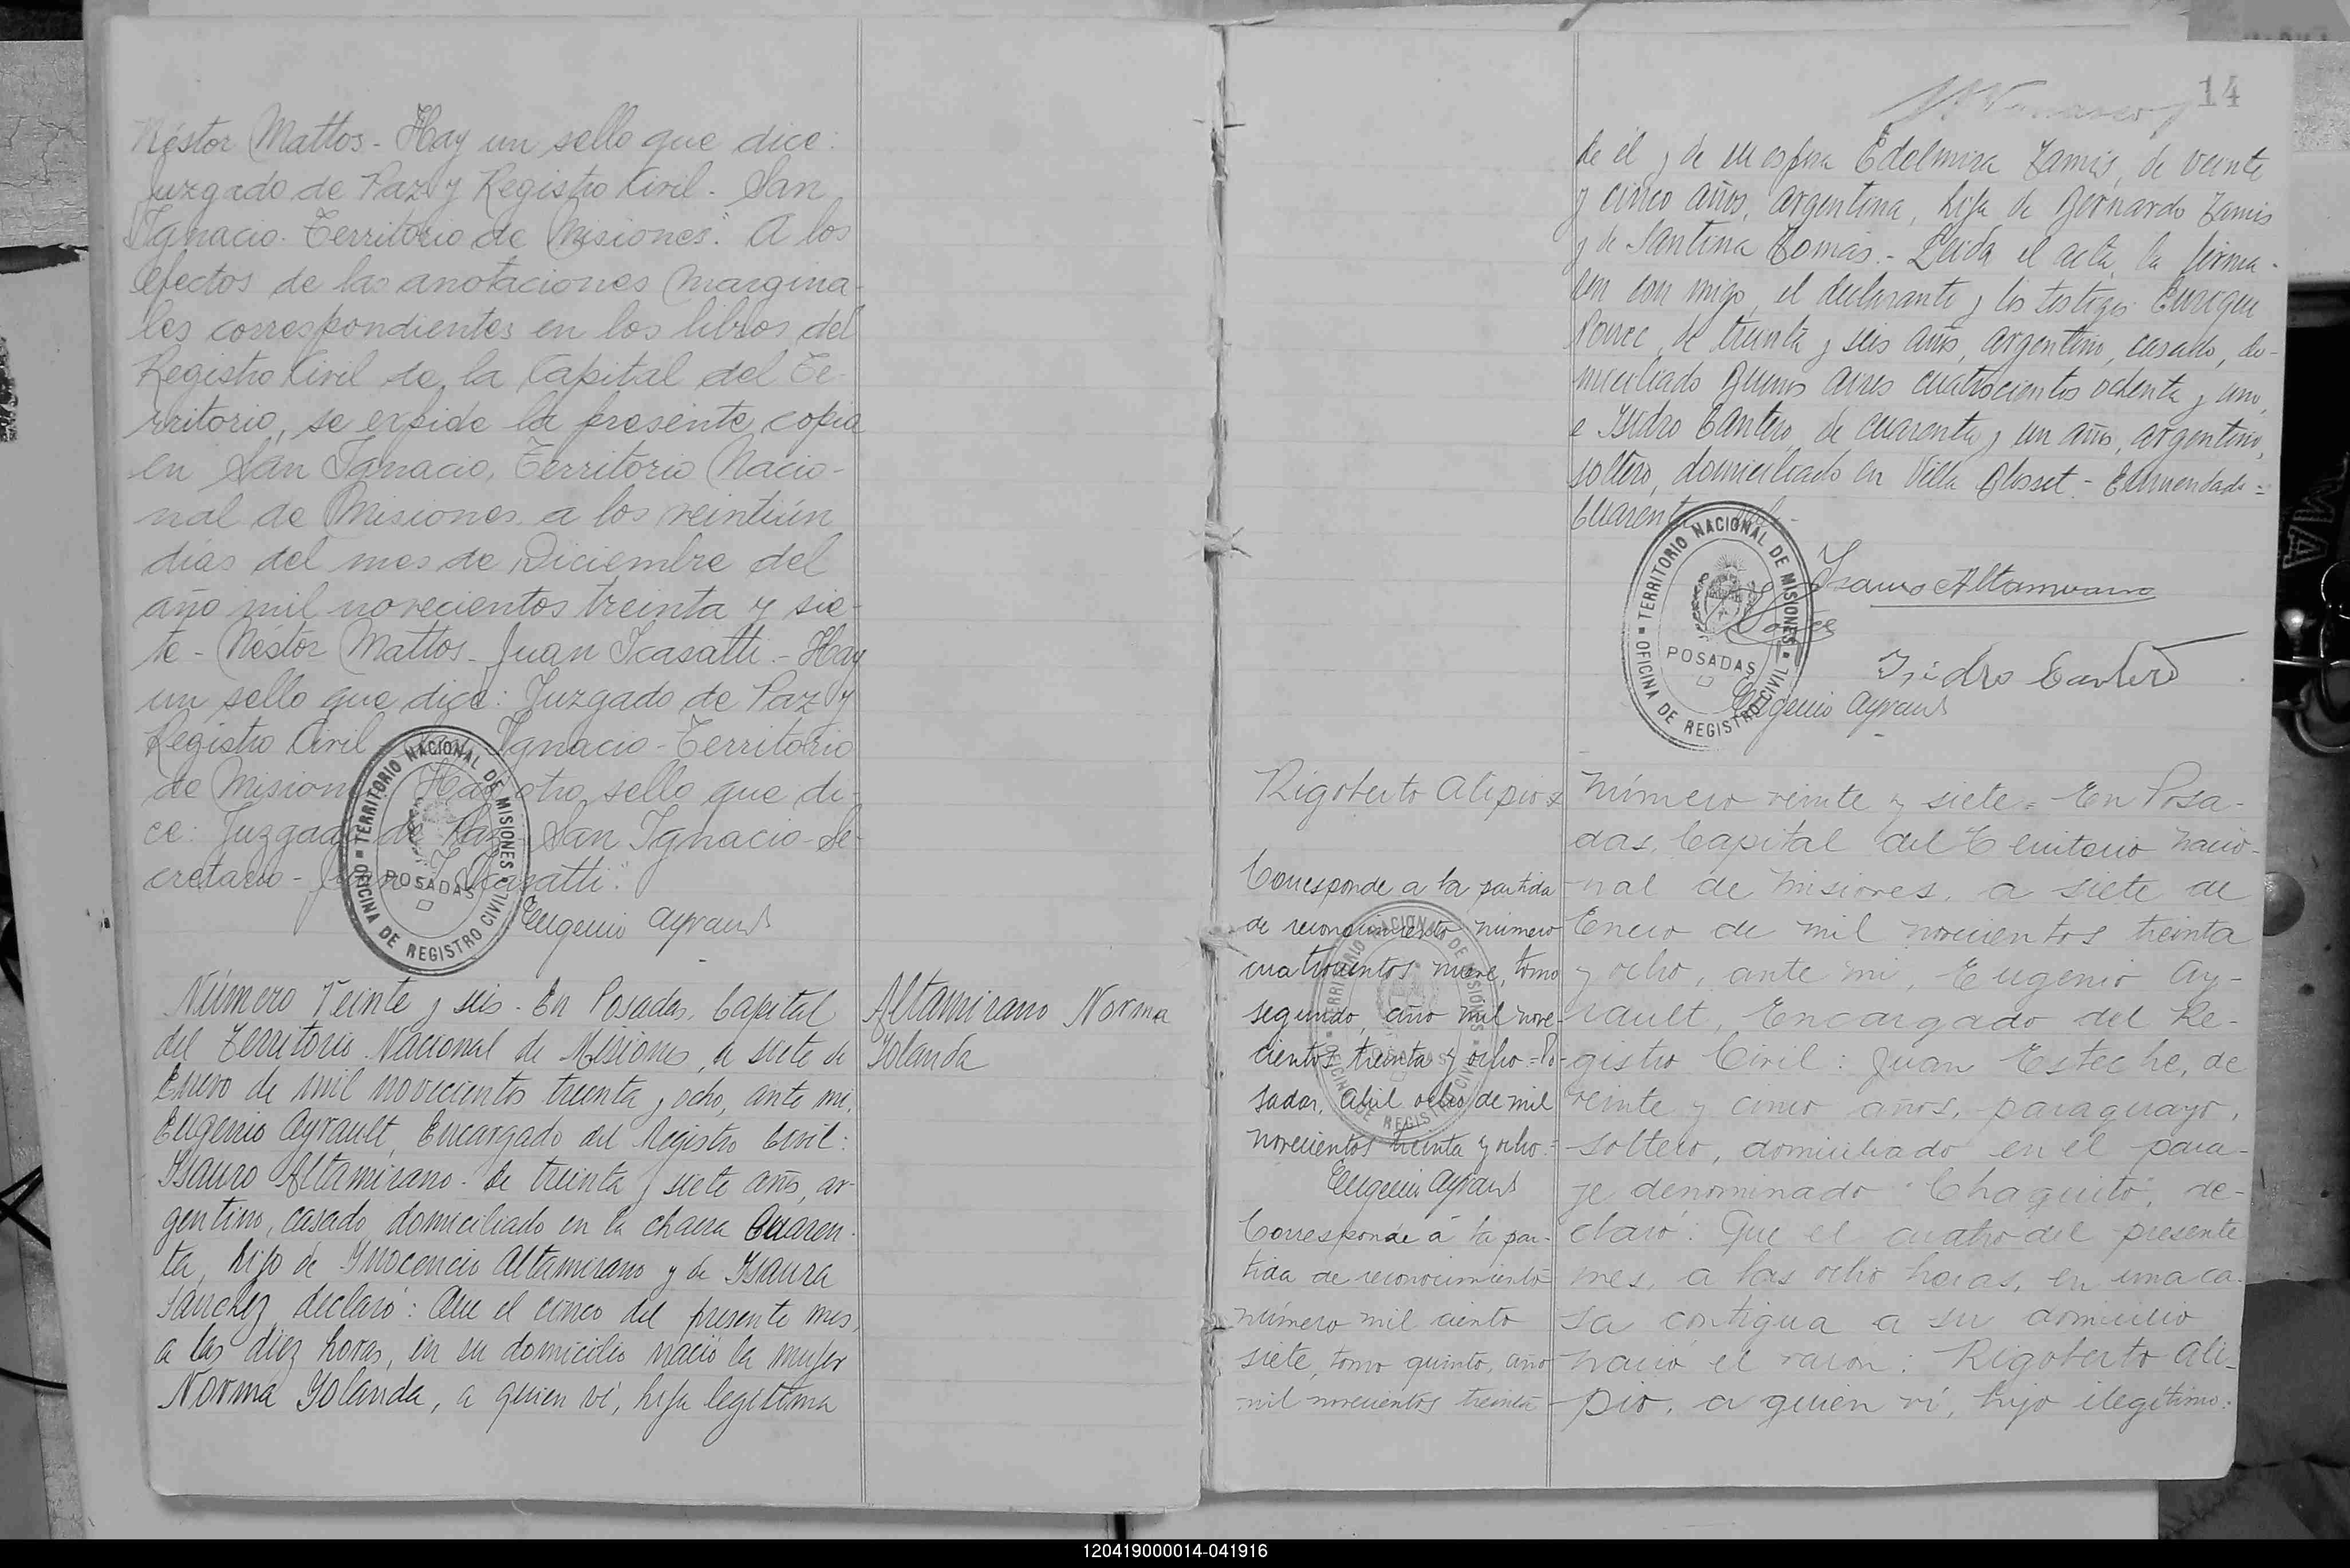 Néstor Mattos - Hay un sello que dice:
Juzgado de Paz y Registro Civil - San
Ignacio - Territorio de Misiones". A los
efectos de las anotaciones margina-
les correspondientes en los libros del
Registro Civil de la Capital del Te-
rritorio, se expide la presente copia
en San Ignacio, Territorio Nacio-
nal de Misiones a los veintiún
días del mes de Diciembre del
año mil novecientos treinta y sie-
te - Néstor Mattos - Juan Icasatti - Hay
un sello que dice: Juzgado de Paz y
Registro Civil Ignacio - Territorio
de Mision Hay otro sello que di-
ce: Juzgado de Paz - San Ignacio - Se-
cretario - Juan Icasatti".
TERRITORIO NACIONAL DE MISIONES
POSADAS
OFICINA DE REGISTRO CIVIL
Eugenio Ayrault
Número Veinte y seis - En Posadas, Capital
del Territorio Nacional de Misiones, a siete de
Enero de mil novecientos treinta y ocho, ante mí,
Eugenio Ayrault, Encargado del Registro Civil:
Isauro Altamirano - de treinta y siete años, ar-
gentino, casado, domiciliado en la chacra Cuaren-
ta, hijo de Inocencio Altamirano y de Isaura
Sánchez, declaró: Que el cinco del presente mes,
a las diez horas, en su domicilio nació la mujer
Norma Yolanda, a quien ví, hija legítima
Altamirano Norma
Yolanda
14
de él y de su esposa Edelmira Zamis, de veinte
y cinco años, argentina, hija de Bernardo Zamis
y de Santina Tomás. - Leída el acta, la firma-
ron con migo, el declarante y los testigos Enrique
Ponce, de treinta y seis años, argentino, casado, do-
miciliado Buenos Aires cuatrocientos ochenta y uno,
e Isidro Cantero, de cuarenta y un años, argentino,
soltero, domiciliado en Villa Blosset - Enmendado =
Cuarenta
TERRITORIO NACIONAL DE MISIONES
POSADAS
OFICINA DE REGISTRO CIVIL
Isauro Altamirano
Ponce
Isidro Cantero
Eugenio Ayrault
Rigoberto Alipio
Corresponde a la partida
de reconocimiento número
cuatrocientos nueve, tomo
segundo, año mil nove-
cientos treinta y ocho = Po-
sadas, Abril ocho de mil
novecientos treinta y ocho =
Eugenio Ayrault
Corresponde á la par-
tida de reconocimiento
número mil ciento
siete, tomo quinto, año
mil novecientos treinta
Número veinte y siete = En Posa-
das, Capital del Territorio Nacio-
nal de Misiones, a siete de
Enero de mil novecientos treinta
y ocho, ante mí, Eugenio Ay-
rault, Encargado del Re-
gistro Civil: Juan Esteche, de
veinte y cinco años, paraguayo,
soltero, domiciliado en el para-
je denominado "Chaquito", de-
claró: Que el cuatro del presente
mes, a las ocho horas, en una ca-
sa contigua a su domicilio
nació el varón: Rigoberto Ali-
pio, a quien ví, hijo ilegítimo:
120419000014-041916